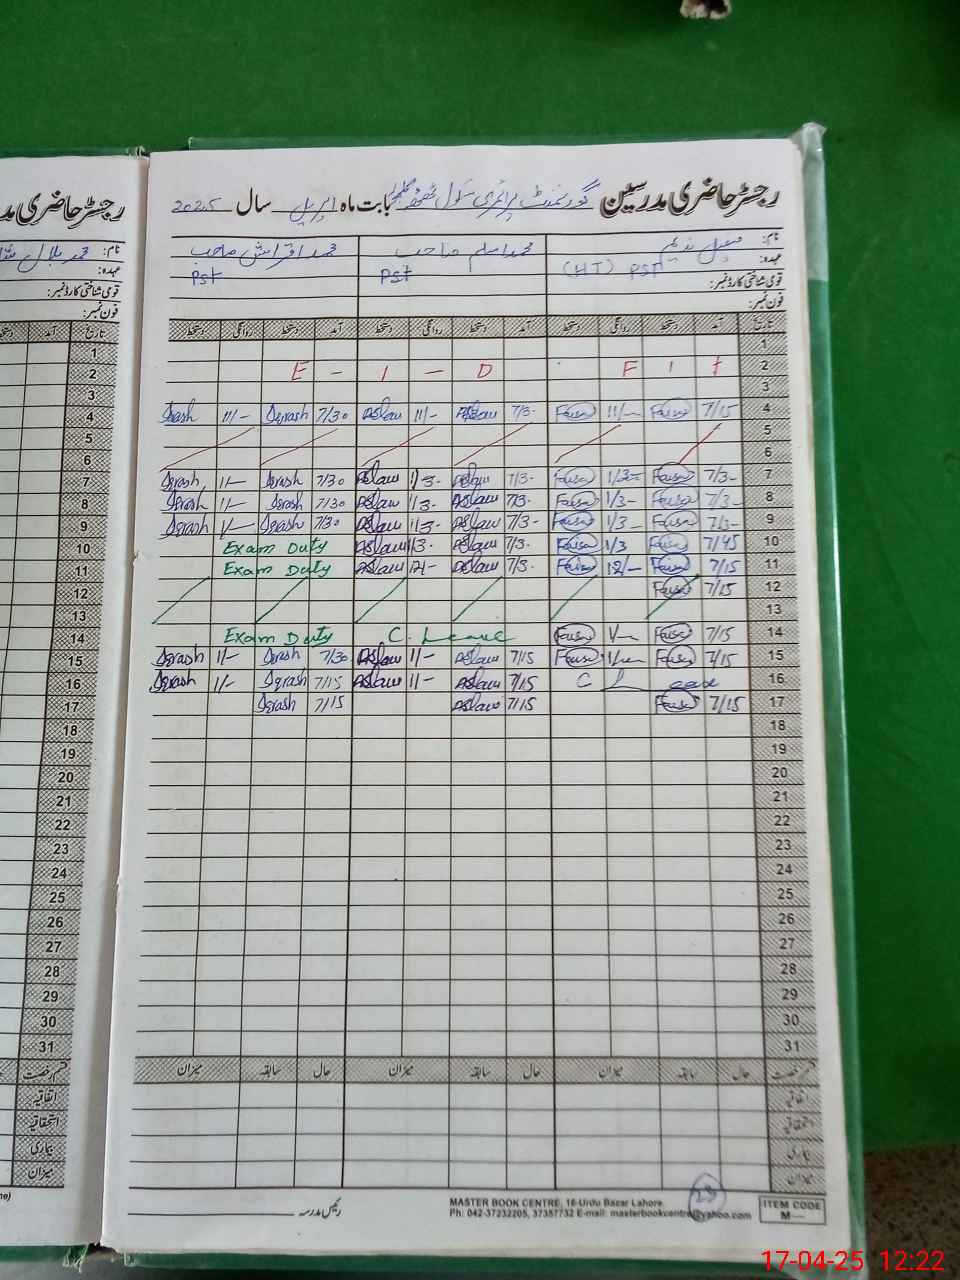 رجسٹر حاضری مدرسین گورنمنٹ پرائمری سکول بابت ماہ اپریل سال 2025
نام: محمد اسلم صاحب محمد اقراش صاحب
عہدہ: (HT) PST PST PST
قومی شناختی کارڈ نمبر:
فون نمبر:
تاریخ آمد دستخط روانگی دستخط آمد دستخط روانگی دستخط آمد دستخط روانگی دستخط
1
2 E - I - D F I t
3
4 Iqrash 11/- Iqrash 7/30 Aslam 11/- Aslam 7/3- Faisal 11/- Faisal 7/15
5
6
7 Iqrash 1/- Iqrash 7/30 Aslam 1/3- Aslam 7/3- Faisal 1/3- Faisal 7/3-
8 Iqrash 1/- Iqrash 7/30 Aslam 1/3- Aslam 7/3- Faisal 1/3- Faisal 7/3-
9 Iqrash 1/- Iqrash 7/30 Aslam 1/3- Aslam 7/3- Faisal 1/3- Faisal 7/3-
10 Exam Duty Aslam 1/3- Aslam 7/3- Faisal 1/3 Faisal 7/45
11 Exam Duty Aslam 12/- Aslam 7/3- Faisal 12/- Faisal 7/15
12 Faisal 7/15
13
14 Exam Duty C. Leave Faisal 1/- Faisal 7/15
15 Iqrash 1/- Iqrash 7/30 Aslam 1/- Aslam 7/15 Faisal 1/- Faisal 7/15
16 Iqrash 1/- Iqrash 7/15 Aslam 1/- Aslam 7/15 C Leave
17 Iqrash 7/15 Aslam 7/15 Faisal 7/15
18
19
20
21
22
23
24
25
26
27
28
29
30
31
قسم رخصت حال سابقہ میزان حال سابقہ میزان حال سابقہ میزان
اتفاقیہ
استحقاقیہ
بیماری
میزان
رئیس مدرسہ
MASTER BOOK CENTRE, 16-Urdu Bazar Lahore.
Ph: 042-37232205, 37357732 E-mail: masterbookcentre@yahoo.com
ITEM CODE
M—
رجسٹر حاضری مد
نام: محمد بلال
عہدہ:
قومی شناختی کارڈ نمبر:
فون نمبر:
تاریخ آمد
1
2
3
4
5
6
7
8
9
10
11
12
13
14
15
16
17
18
19
20
21
22
23
24
25
26
27
28
29
30
31
قسم رخصت
اتفاقیہ
استحقاقیہ
بیماری
میزان
17-04-25 12:22